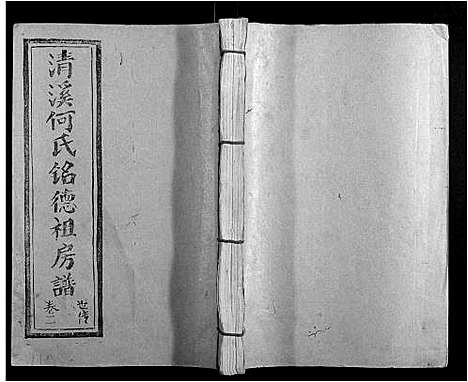 清溪何氏銘德祖房譜
世傳
卷二